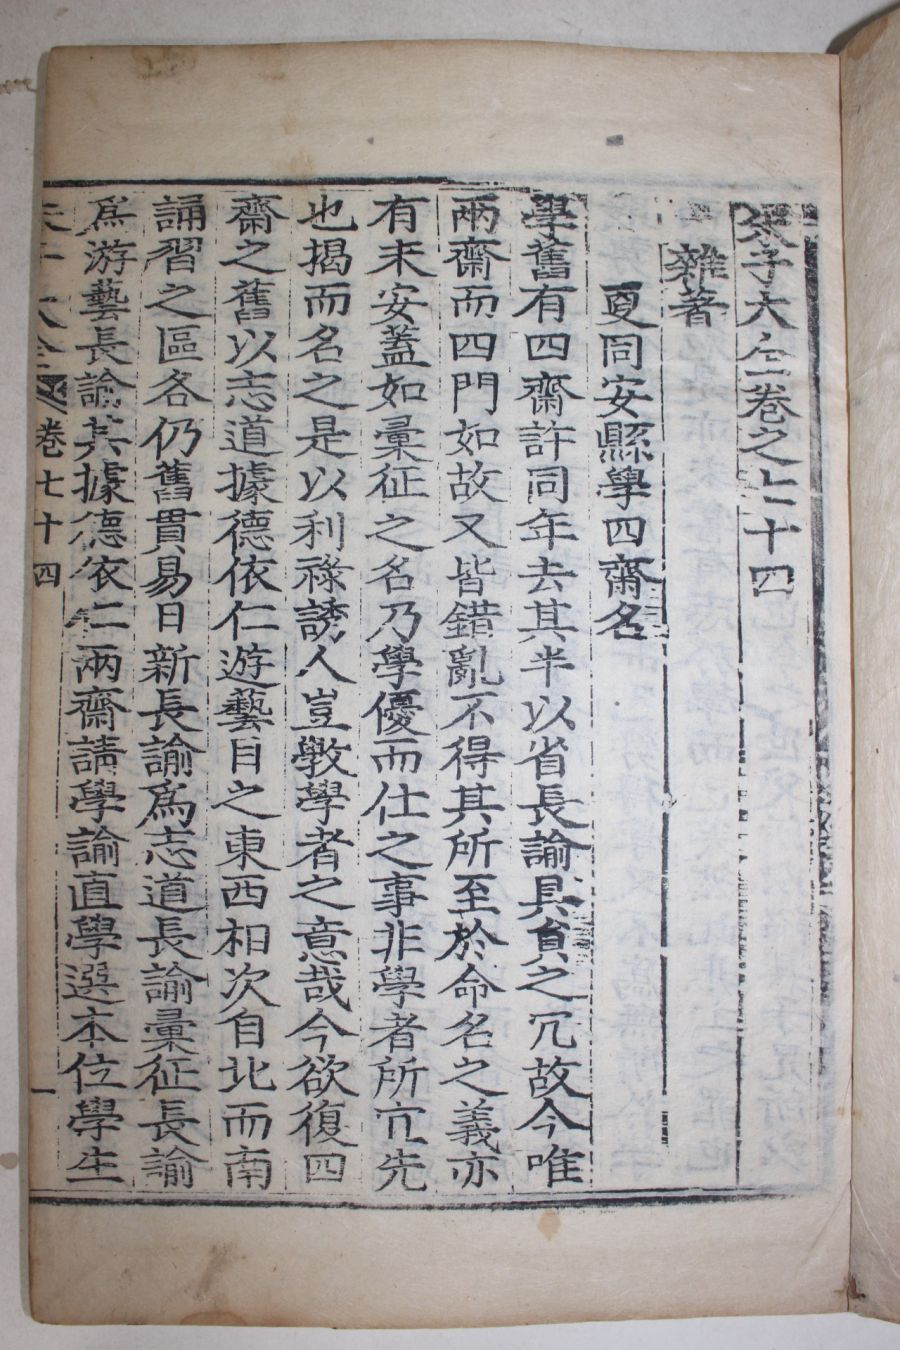 朱子大仝卷之七十四
雜著
更同安縣學四齋名
學舊有四齋許同年去其半以省長諭具員之冗故今唯
兩齋而四門如故又皆錯亂不得其所至於命名之義亦
有未安蓋如彙征之名乃學優而仕之事非學者所宜先
也揭而名之是以利祿誘人豈敎學者之意哉今欲復四
齋之舊以志道據德依仁遊藝目之東西相次自北而南
誦習之區各仍舊貫易日新長諭爲志道長諭彙征長諭
爲游藝長諭其據德依仁兩齋請學諭直學選本位學生
朱子大全 卷七十四 一